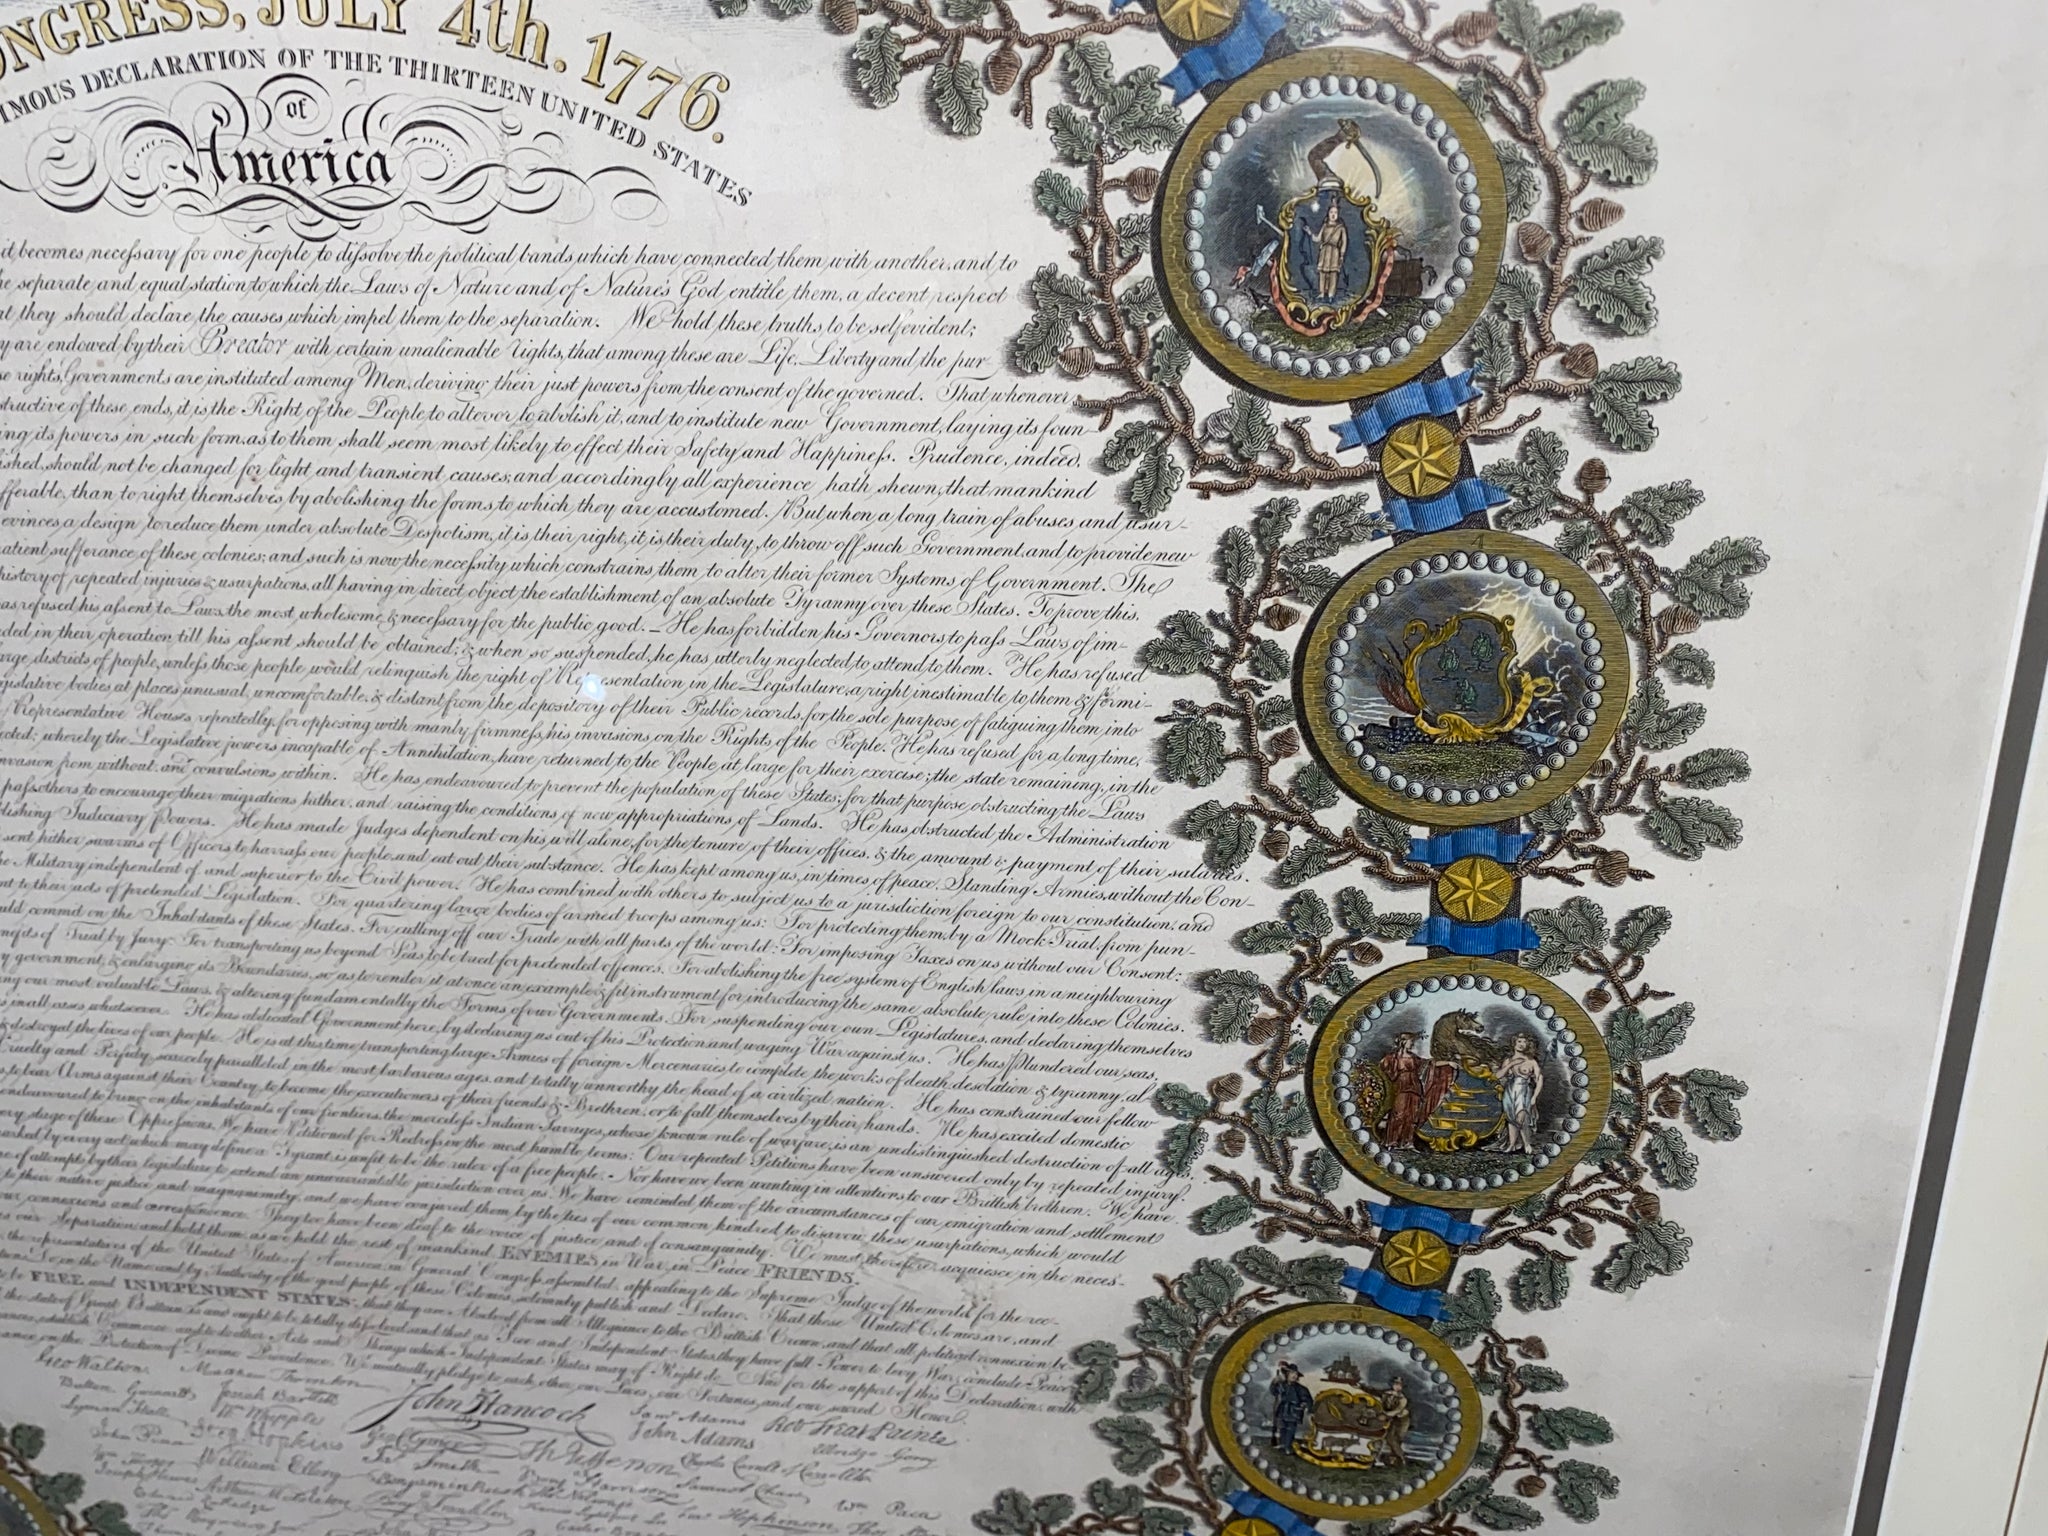 ONGRESS, JULY 4th. 1776.
IMOUS DECLARATION OF THE THIRTEEN UNITED STATES
of
America
it becomes necessary for one people to dissolve the political bands which have connected them with another, and to
separate and equal station to which the Laws of Nature and of Nature's God entitle them, a decent respect
they should declare the causes which impel them to the separation. We hold these truths to be self evident;
are endowed by their Creator with certain unalienable rights, that among these are Life, Liberty and the pur-
rights, Governments are instituted among Men, deriving their just powers from the consent of the governed. That whenever
structive of these ends, it is the Right of the People to alter or to abolish it, and to institute new Government, laying its foun-
ing its powers in such form, as to them shall seem most likely to effect their Safety and Happiness. Prudence, indeed,
ished, should not be changed for light and transient causes; and accordingly all experience hath shewn, that mankind
fferable, than to right themselves by abolishing the forms to which they are accustomed. But when a long train of abuses and usur-
evinces a design to reduce them under absolute Despotism, it is their right, it is their duty, to throw off such Government, and to provide new
atient sufferance of these colonies; and such is now the necessity which constrains them to alter their former Systems of Government. The
history of repeated injuries & usurpations, all having in direct object the establishment of an absolute Tyranny over these States. To prove this,
as refused his assent to Laws, the most wholesome & necessary for the public good. — He has forbidden his Governors to pass Laws, of im-
ded in their operation till his assent should be obtained; & when so suspended, he has utterly neglected to attend to them. He has refused
arge districts of people, unless those people would relinquish the right of Representation in the Legislature, a right inestimable to them & formi-
gislative bodies at places unusual, uncomfortable, & distant from the depository of their Public records, for the sole purpose of fatiguing them into
Representative Houses, repeatedly, for opposing with manly firmness, his invasions, on the Rights of the People. He has refused for a long time,
cted; whereby the Legislative powers incapable of Annihilation, have returned to the People at large for their exercise; the state remaining, in the
nvasion from without, and convulsions within. He has endeavoured to prevent the population of these States; for that purpose obstructing the Laws
pass others to encourage their migrations hither, and raising the conditions of new appropriations of Lands. He has obstructed the Administration
lishing Judiciary Powers. He has made Judges dependent on his will alone, for the tenure of their offices, & the amount & payment of their salaries.
sent hither swarms of Officers to harrass our people and eat out their substance. He has kept among us, in times of peace, Standing Armies without the Con-
he Military independent of and superior to the Civil power. He has combined with others to subject us to a jurisdiction foreign to our constitution, and
nt to their acts of pretended Legislation. For quartering large bodies of armed troops among us: For protecting them, by a Mock Trial, from pun-
uld commit on the Inhabitants of these States. For cutting off our Trade with all parts of the world: For imposing Taxes on us without our Consent:
nefits of Trial by Jury: For transporting us beyond Seas to be tried for pretended offences. For abolishing the free system of English laws in a neighbouring
y government, & enlarging its Boundaries, so as to render it at once an example & fit instrument for introducing the same absolute rule into these Colonies.
ng our most valuable Laws, & altering fundamentally the Forms of our Governments. For suspending our own Legislatures, and declaring themselves
s in all cases whatsoever. He has abdicated Government here, by declaring us out of his Protection and waging War against us. He has Plundered our seas,
& destroyed the lives of our people. He is at this time, transporting large Armies of foreign Mercenaries to complete the works of death, desolation & tyranny, al
Cruelty and Perfidy, scarcely paralleled in the most barbarous ages, and totally unworthy the head of a civilized nation. He has constrained our fellow
to bear Arms against their Country, to become the executioners of their friends & Brethren, or to fall themselves by their hands. He has excited domestic
endeavoured to bring on the inhabitants of our frontiers, the merciless Indian Savages, whose known rule of warfare, is an undistinguished destruction of all ages,
ory stage of these Oppressions, We have Petitioned for Redress in the most humble terms: Our repeated Petitions have been answered only by repeated injury.
arked by every act which may define a Tyrant is unfit to be the ruler of a free people. Nor have we been wanting in attentions to our Brittish brethren. We have
of attempts by their legislature to extend an unwarrantable jurisdiction over us. We have reminded them of the circumstances of our emigration and settlement
to their native justice and magnanimity, and we have conjured them by the ties of our common kindred to disavow these usurpations, which would
our connexions and correspondence. They too have been deaf to the voice of justice and of consanguinity. We must therefore, acquiesce in the neces-
our Separation and hold them, as we hold the rest of mankind, ENEMIES in War, in Peace FRIENDS.
the representatives of the United States of America, in General Congress, assembled, appealing to the Supreme Judge of the world for the rec-
tions, do in the Name and by Authority of the good people of these Colonies, solemnly publish and Declare, That these United Colonies are, and
to be FREE and INDEPENDENT STATES; that they are Absolved from all Allegiance to the Brittish Crown, and that all political connexion be
the state of Great Brittain is and ought to be totally dissolved and that as Free and Independent States, they have full Power to levy War, conclude Peace
Commerce and to do all other Acts and Things which Independent States may of Right do. And for the support of this Declaration, with
on the Protection of Divine Providence, We mutually pledge to each other our Lives, our Fortunes, and our sacred Honor.
Geo Walton. Matthew Thornton
Button Gwinnett Josiah Bartlett John Hancock Saml Adams Robt Treat Paine
Lyman Hall Wm Whipple John Adams Elbridge Gerry
John Penn Step Hopkins Geo Clymer Th Jefferson Charles Carroll of Carrollton
Wm Hooper William Ellery Js Smith Benj Harrison Samuel Chase
Joseph Hewes Benjamin Rush Wm Paca
Edward Rutledge Arthur Middleton Benj Franklin Francis Lightfoot Lee Hopkinson